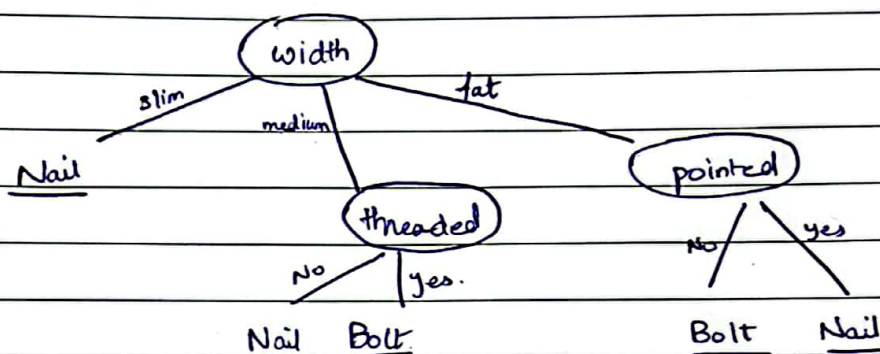 width
slim
fat
medium
Nail
pointed
threaded
No
yes
No
yes.
Nail
Bolt
Bolt
Nail